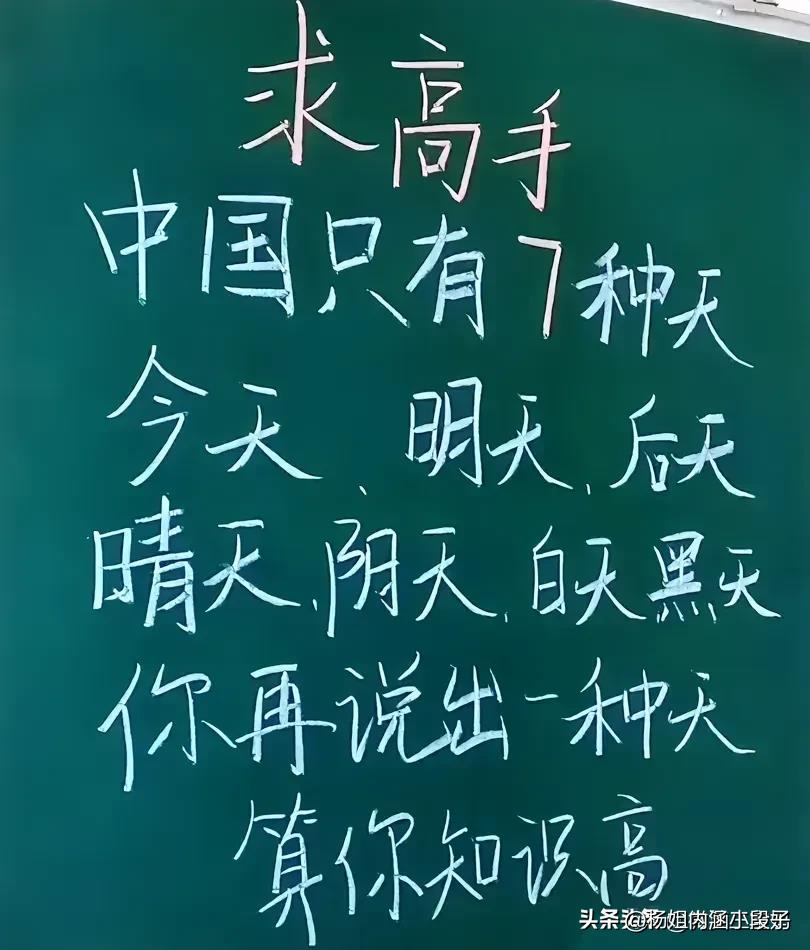 求高手
中国只有7种天
今天、明天、后天
晴天、阴天、白天黑天
你再说出一种天
算你知识高
头条